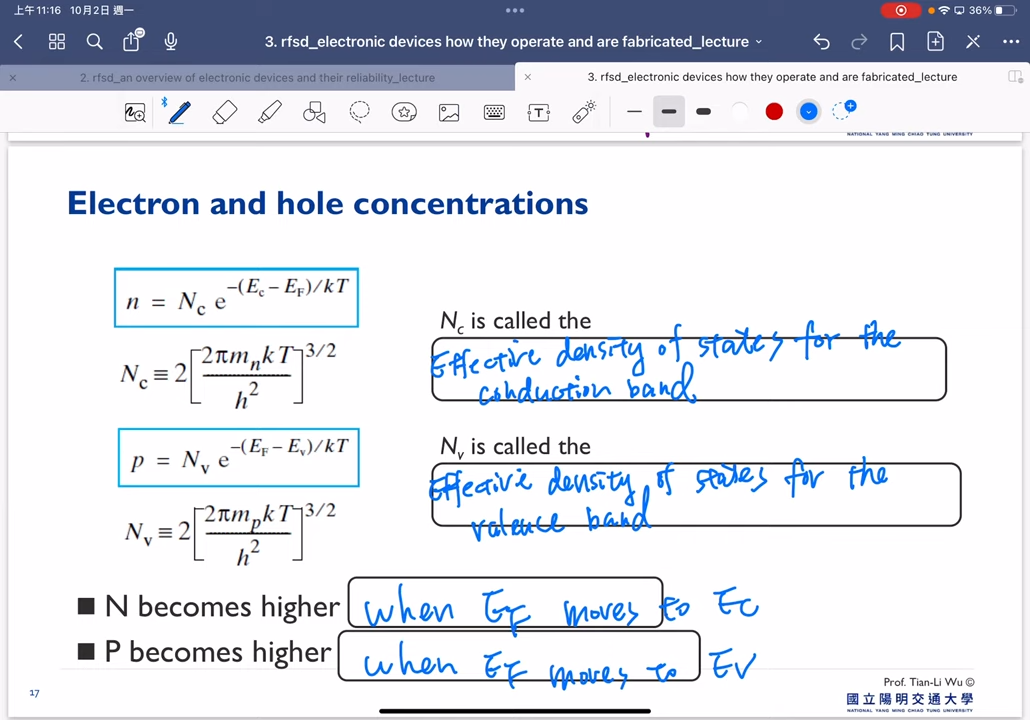 上午11:16 10月2日 週一
36%
3. rfsd_electronic devices how they operate and are fabricated_lecture
2. rfsd_an overview of electronic devices and their reliability_lecture
3. rfsd_electronic devices how they operate and are fabricated_lecture
NATIONAL YANG MING CHIAO TUNG UNIVERSITY
Electron and hole concentrations
n = N_c e^{-(E_c - E_F)/kT}
N_c is called the
Effective density of states for the
conduction band
N_c ≡ 2[2πm_n kT / h^2]^{3/2}
p = N_v e^{-(E_F - E_v)/kT}
N_v is called the
Effective density of states for the
valence band
N_v ≡ 2[2πm_p kT / h^2]^{3/2}
■ N becomes higher when E_F moves to Ec
■ P becomes higher when E_F moves to EV
17
Prof. Tian-Li Wu ©
國立陽明交通大學
NATIONAL YANG MING CHIAO TUNG UNIVERSITY